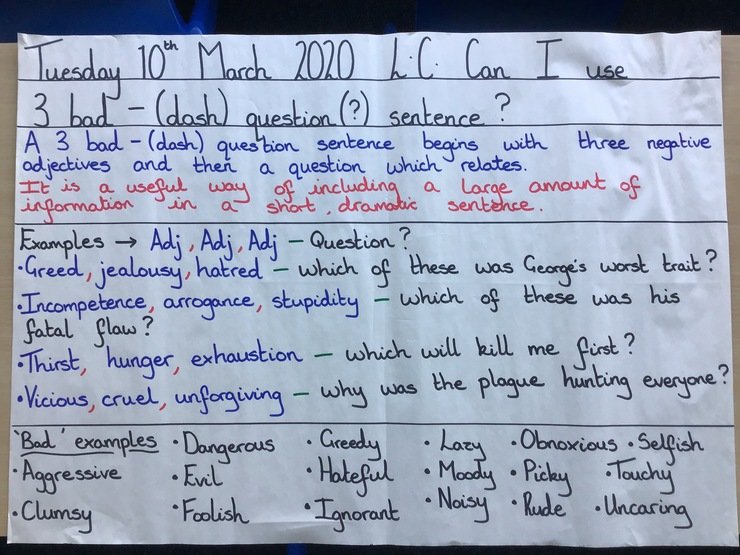 Tuesday 10th March 2020 L.C. Can I use
3 bad - (dash) question (?) sentence ?
A 3 bad - (dash) question sentence begins with three negative
adjectives and then a question which relates.
It is a useful way of including a large amount of
information in a short, dramatic sentence.
Examples → Adj, Adj, Adj – Question?
• Greed, jealousy, hatred – which of these was George's worst trait?
• Incompetence, arrogance, stupidity – which of these was his
fatal flaw?
• Thirst, hunger, exhaustion – which will kill me first?
• Vicious, cruel, unforgiving – why was the plague hunting everyone?
'Bad' examples • Dangerous • Greedy • Lazy • Obnoxious • Selfish
• Aggressive • Evil • Hateful • Moody • Picky • Touchy
• Clumsy • Foolish • Ignorant • Noisy • Rude • Uncaring